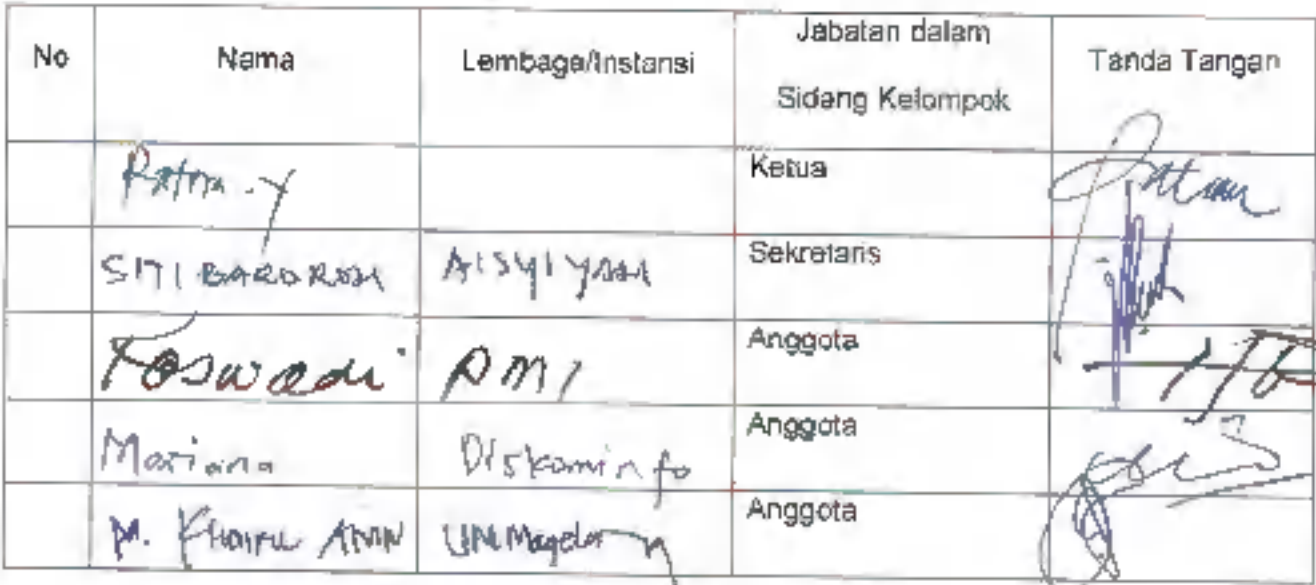 No Nama Lembaga/Instansi Jabatan dalam Sidang Kelompok Tanda Tangan
Ratna . Y Ketua
SITI BAROROH AISYIYAH Sekretaris
Toswadi PMI Anggota
Mariana Diskominfo Anggota
M. Anggota